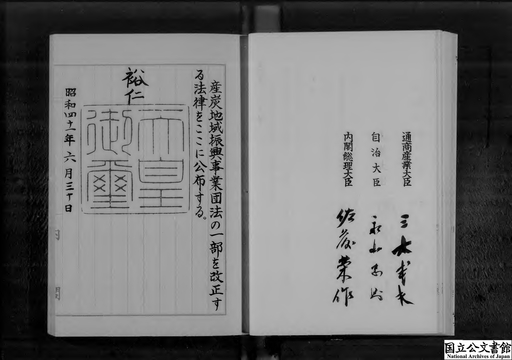 通商産業大臣 三木武夫
自治大臣 永山忠則
内閣総理大臣 佐藤栄作
産炭地域振興事業団法の一部を改正す
る法律をここに公布する。
裕仁
天皇
御璽
昭和四十一年六月三十日
国立公文書館
National Archives of Japan